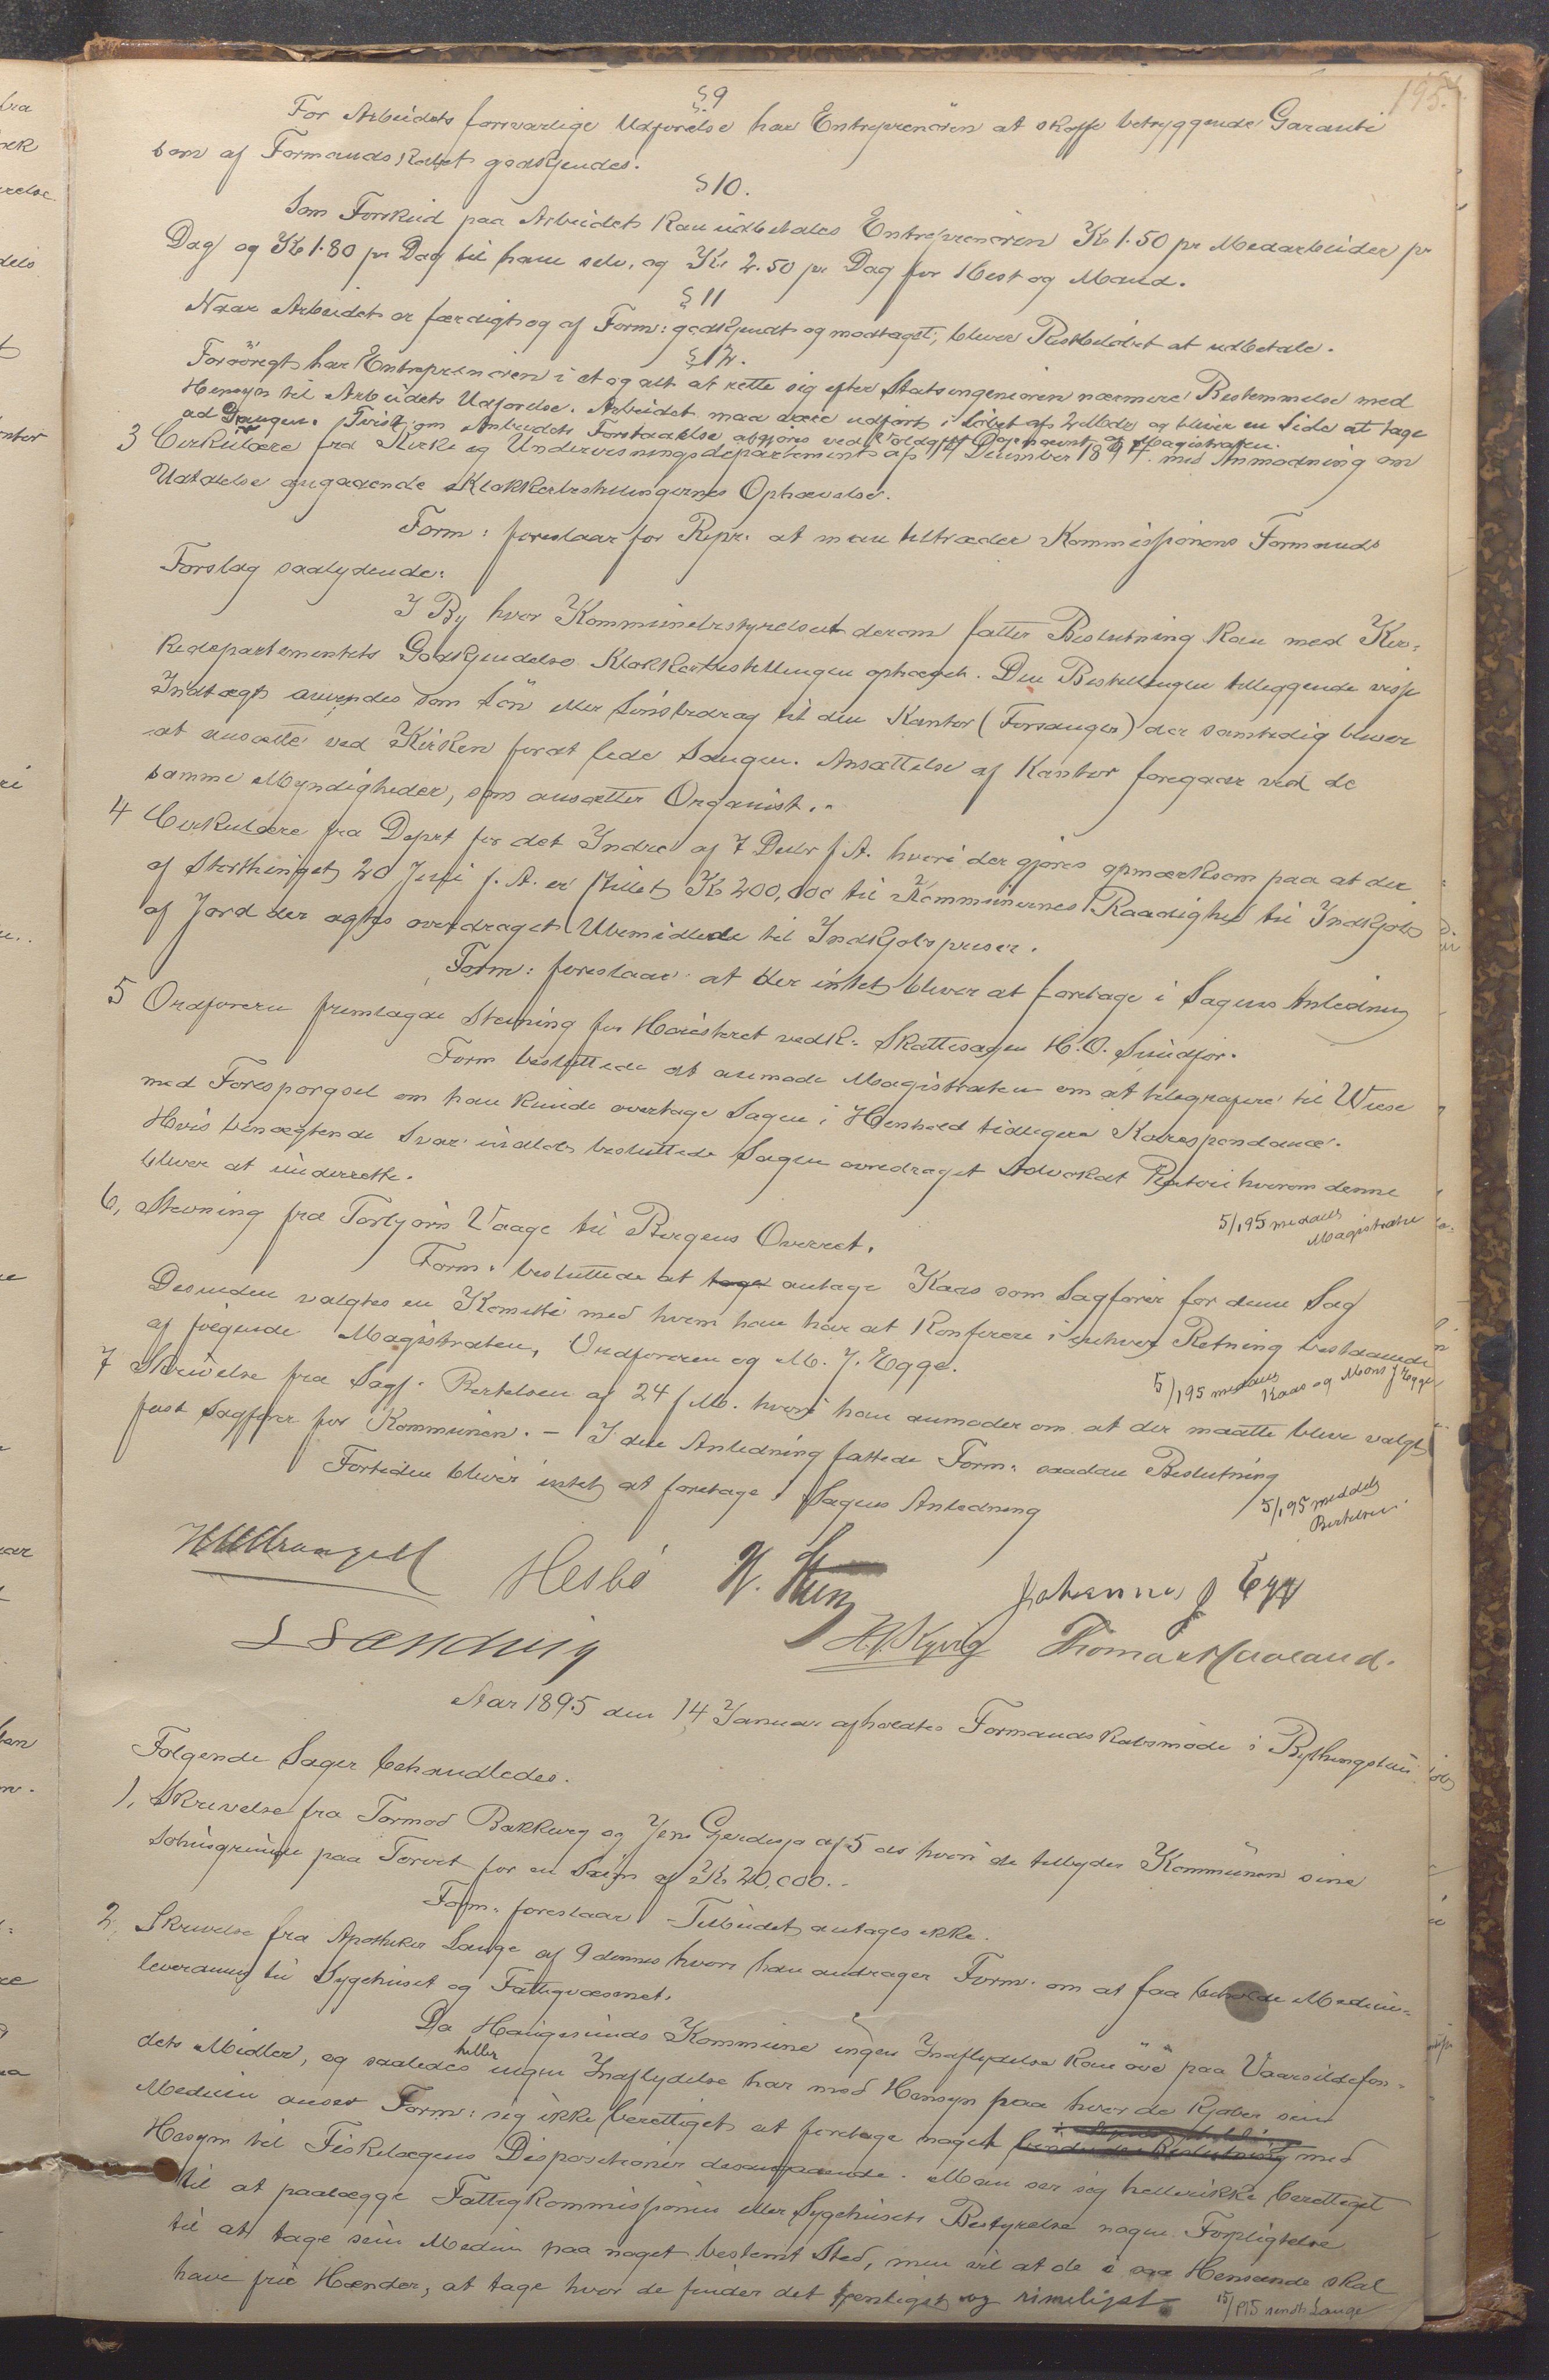 195.
§9
For Arbeidets forsvarlige Udførelse har Entreprenören at skaffe betryggende Garanti
som af Formandskabet godkjendes.
§10.
Som Forskud paa Arbeidet kan udbetales Entreprenören Kr 1.50 pr Medarbeider pr
Dag og Kr 1.80 pr Dag til ham selv, og Kr 2.50 pr Dag for Hest og Mand.
§11
Naar Arbeidet er færdigt og af Form: godkjendt og modtaget, bliver Restbelöbet at udbetale.
§12.
Forövrigt har Entreprenören i et og alt at rette sig efter Statsingeniören nærmere Bestemmelse med
Hensyn til Arbeidets Udførelse. Arbeidet maa være udført i Löbet af 2 Mdr og bliver en Side at tage
ad Gangen. Tvist om Anbudets Forstaaelse afgjöres ved Voldgift af Magistraten.
3 Cirkulære fra Kirke og Undervisningsdepartementet af 14 December 1894 med Anmodning om
Udtalelse angaaende Klokkerbestillingernes Ophævelse.
Form: foreslaar for Repr. at man tiltræder Kommissionens Formands
Forslag saalydende:
I By hvor Kommunebestyrelsen derom fatter Beslutning kan med Kir-
kedepartementets Godkjendelse Klokkerbestillingen ophæves. Den Bestillingen tilleggende visse
Indtægt anvendes som Lön eller Lönsbidrag til den Kantor (Forsanger) der samtidig bliver
at ansætte ved Kirken forat lede Sangen. Ansættelse af Kantor foregaar ved de
samme Myndigheder, som ansætter Organist.
4 Cirkulære fra Deprt for det Indre af 7 Decbr f.A. hvori der gjöres opmærksom paa at der
af Storthinget 20 Juli f.A. er stillet Kr 200,000 til Kommunernes Raadighed til Indkjöb
af Jord der agtes overdraget Ubemidlede til Indkjöbspriser.
Form: foreslaar at der intet bliver at foretage i Sagens Anledning
5 Ordføreren fremlagde Stevning for Höiesteret vedk. Skattesagen H.O. Sundför.
Form besluttede at anmode Magistraten om at telegrafere til Wiese
med Forespørgsel om han kunde overtage Sagen i Henhold tidligere Korrespondance.
Hvis benægtende Svar indlöb besluttede Sagen overdraget Advokat hvorom denne
bliver at underrette.
5/1 95 meddelt
Magistraten
6, Stevning fra Torbjörn Vaage til Bergens Overret.
Form. besluttede at tage antage Kaas som Sagförer for denne Sag
Desuden valgtes en Komite med hvem han har at konferere i enhver Retning bestaaende
af følgende Magistraten, Ordføreren og M. J. Egge.
5/1 95 meddelt
Kaas og Mons J Egge
7 Skrivelse fra Sagf. Bertelsen af 24 f.M. hvori han anmoder om at der maatte blive valgt
fast Sagfører for Kommunen. – I den Anledning fattede Form. saadan Beslutning
Fortiden bliver intet at foretage i Sagens Anledning
5/1 95 meddelt
Bertelsen.
Hesbö
Johannes J Egge
H. Kyvig Thomas Haaland.
Aar 1895 den 14 Januar afholdtes Formandskabsmöde i Bythingstuen
Fölgende Sager behandledes.
1, Skrivelse fra Tormod Bakkevig og Jens Gjerdesjø af 5 ds hvori de tilbyder Kommunen sine
Söhusgrunde paa Torvet for en Sum af Kr 20,000.-
Form. foreslaar – Tilbudet antages ikke.
2, Skrivelse fra Apotheker Lange af 9 dennes hvori han andrager Form. om at faa beholde Medicin-
leverancen til Sygehuset og Fattigvæsenet.
Da Haugesunds Kommune ingen Indflydelse kan öve paa Vaarsildefon-
dets Midler, og saaledes heller ingen Indflydelse har med Hensyn paa hvor de kjöber sin
Medicin anser Form: sig ikke berettiget at foretage noget bindende Beslutning med
Hesyn til Fiskelægens Dispositioner desangaaende. Man ser sig hellerikke berettiget
til at paalægge Fattigkommissionen eller Sygehusets Bestyrelse nogen Forpligtelse
til at tage sin Medicin paa noget bestemt Sted, men vil at de i saa Henseende skal
have frie Hænder, at tage hvor de finder det tjenligst og rimeligst.
15/1 95 sendt Lange